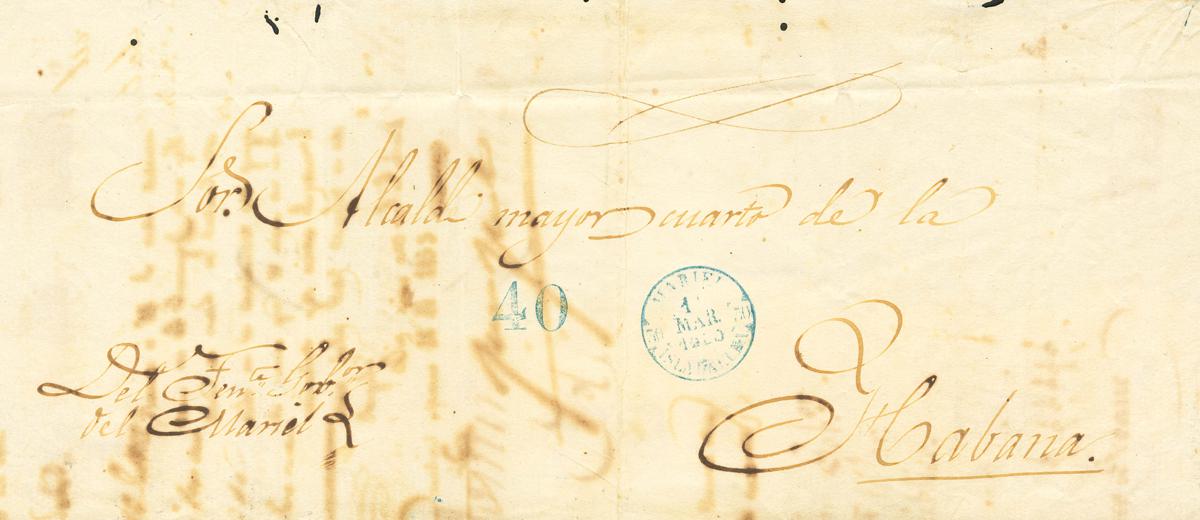 Sor. Alcalde mayor cuarto de la
40
MARIEL
1
MAR.
ISLA DE CUBA
Habana.
Del Tente. Gobor.
del Mariel